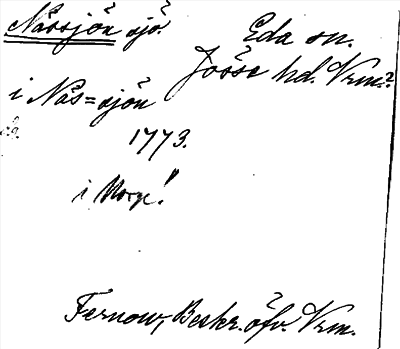 Nässjön sjö.
Eda sn.
Jösse hd. Vrm.?
i Näs=sjön
1773.
i Norge!"
Fernow, Beskr. öfv. Vrm.